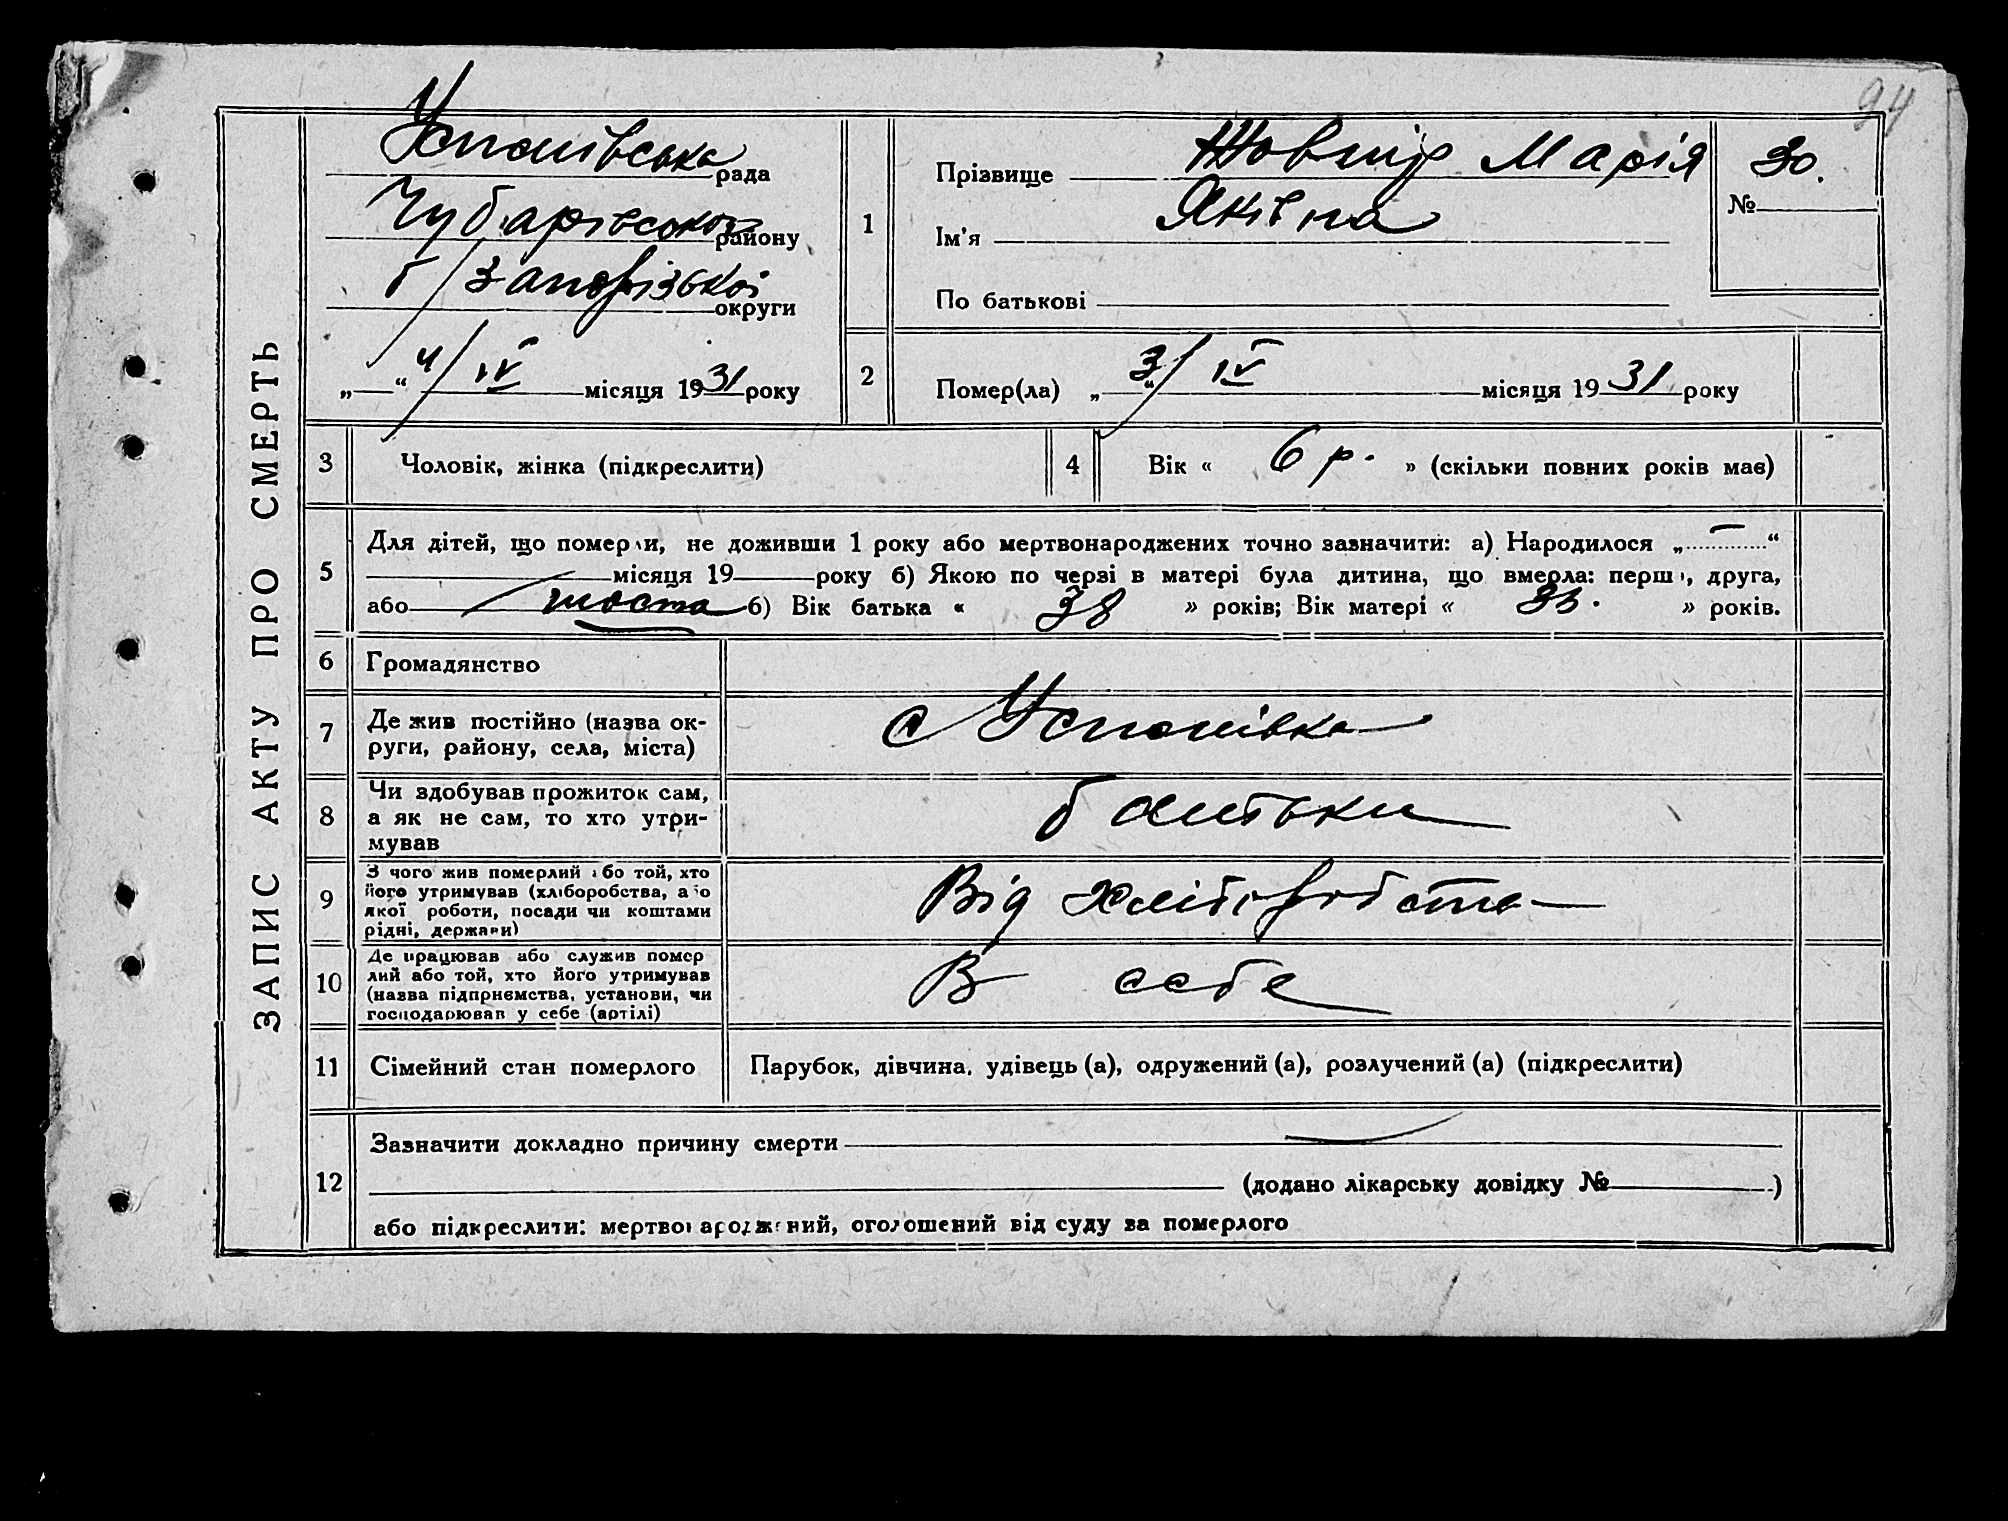 94
ЗАПИС АКТУ ПРО СМЕРТЬ
Успенівська рада
Чубарівського району
б/Запорізької округи
„—“ 4/IV місяця 1931 року
1
Прізвище Жовнір Марія
Ім'я Яківна
По батькові
30.
№
2
Помер(ла) „3“/IV місяця 1931 року
3
Чоловік, жінка (підкреслити)
4
Вік « 6 р. » (скільки повних років має)
5
Для дітей, що померли, не доживши 1 року або мертвонароджених точно зазначити: а) Народилося „—“
місяця 19 року б) Якою по черзі в матері була дитина, що вмерла: перша, друга,
або шоста б) Вік батька « 38 » років; Вік матері « » років.
6
Громадянство
7
Де жив постійно (назва ок-
руги, району, села, міста)
с Успенівка
8
Чи здобував прожиток сам,
а як не сам, то хто утри-
мував
батьки
9
З чого жив померлий або той, хто
його утримував (хліборобства, або
якої роботи, посади чи коштами
рідні, держави)
Від хліборобства
10
Де працював або служив помер
лий або той, хто його утримував
(назва підприємства, установи, чи
господарював у себе (артілі)
В себе
11
Сімейний стан померлого
Парубок, дівчина, удівець (а), одружений (а), розлучений (а) (підкреслити)
12
Зазначити докладно причину смерти
(додано лікарську довідку № )
або підкреслити: мертвонароджений, оголошений від суду за померлого